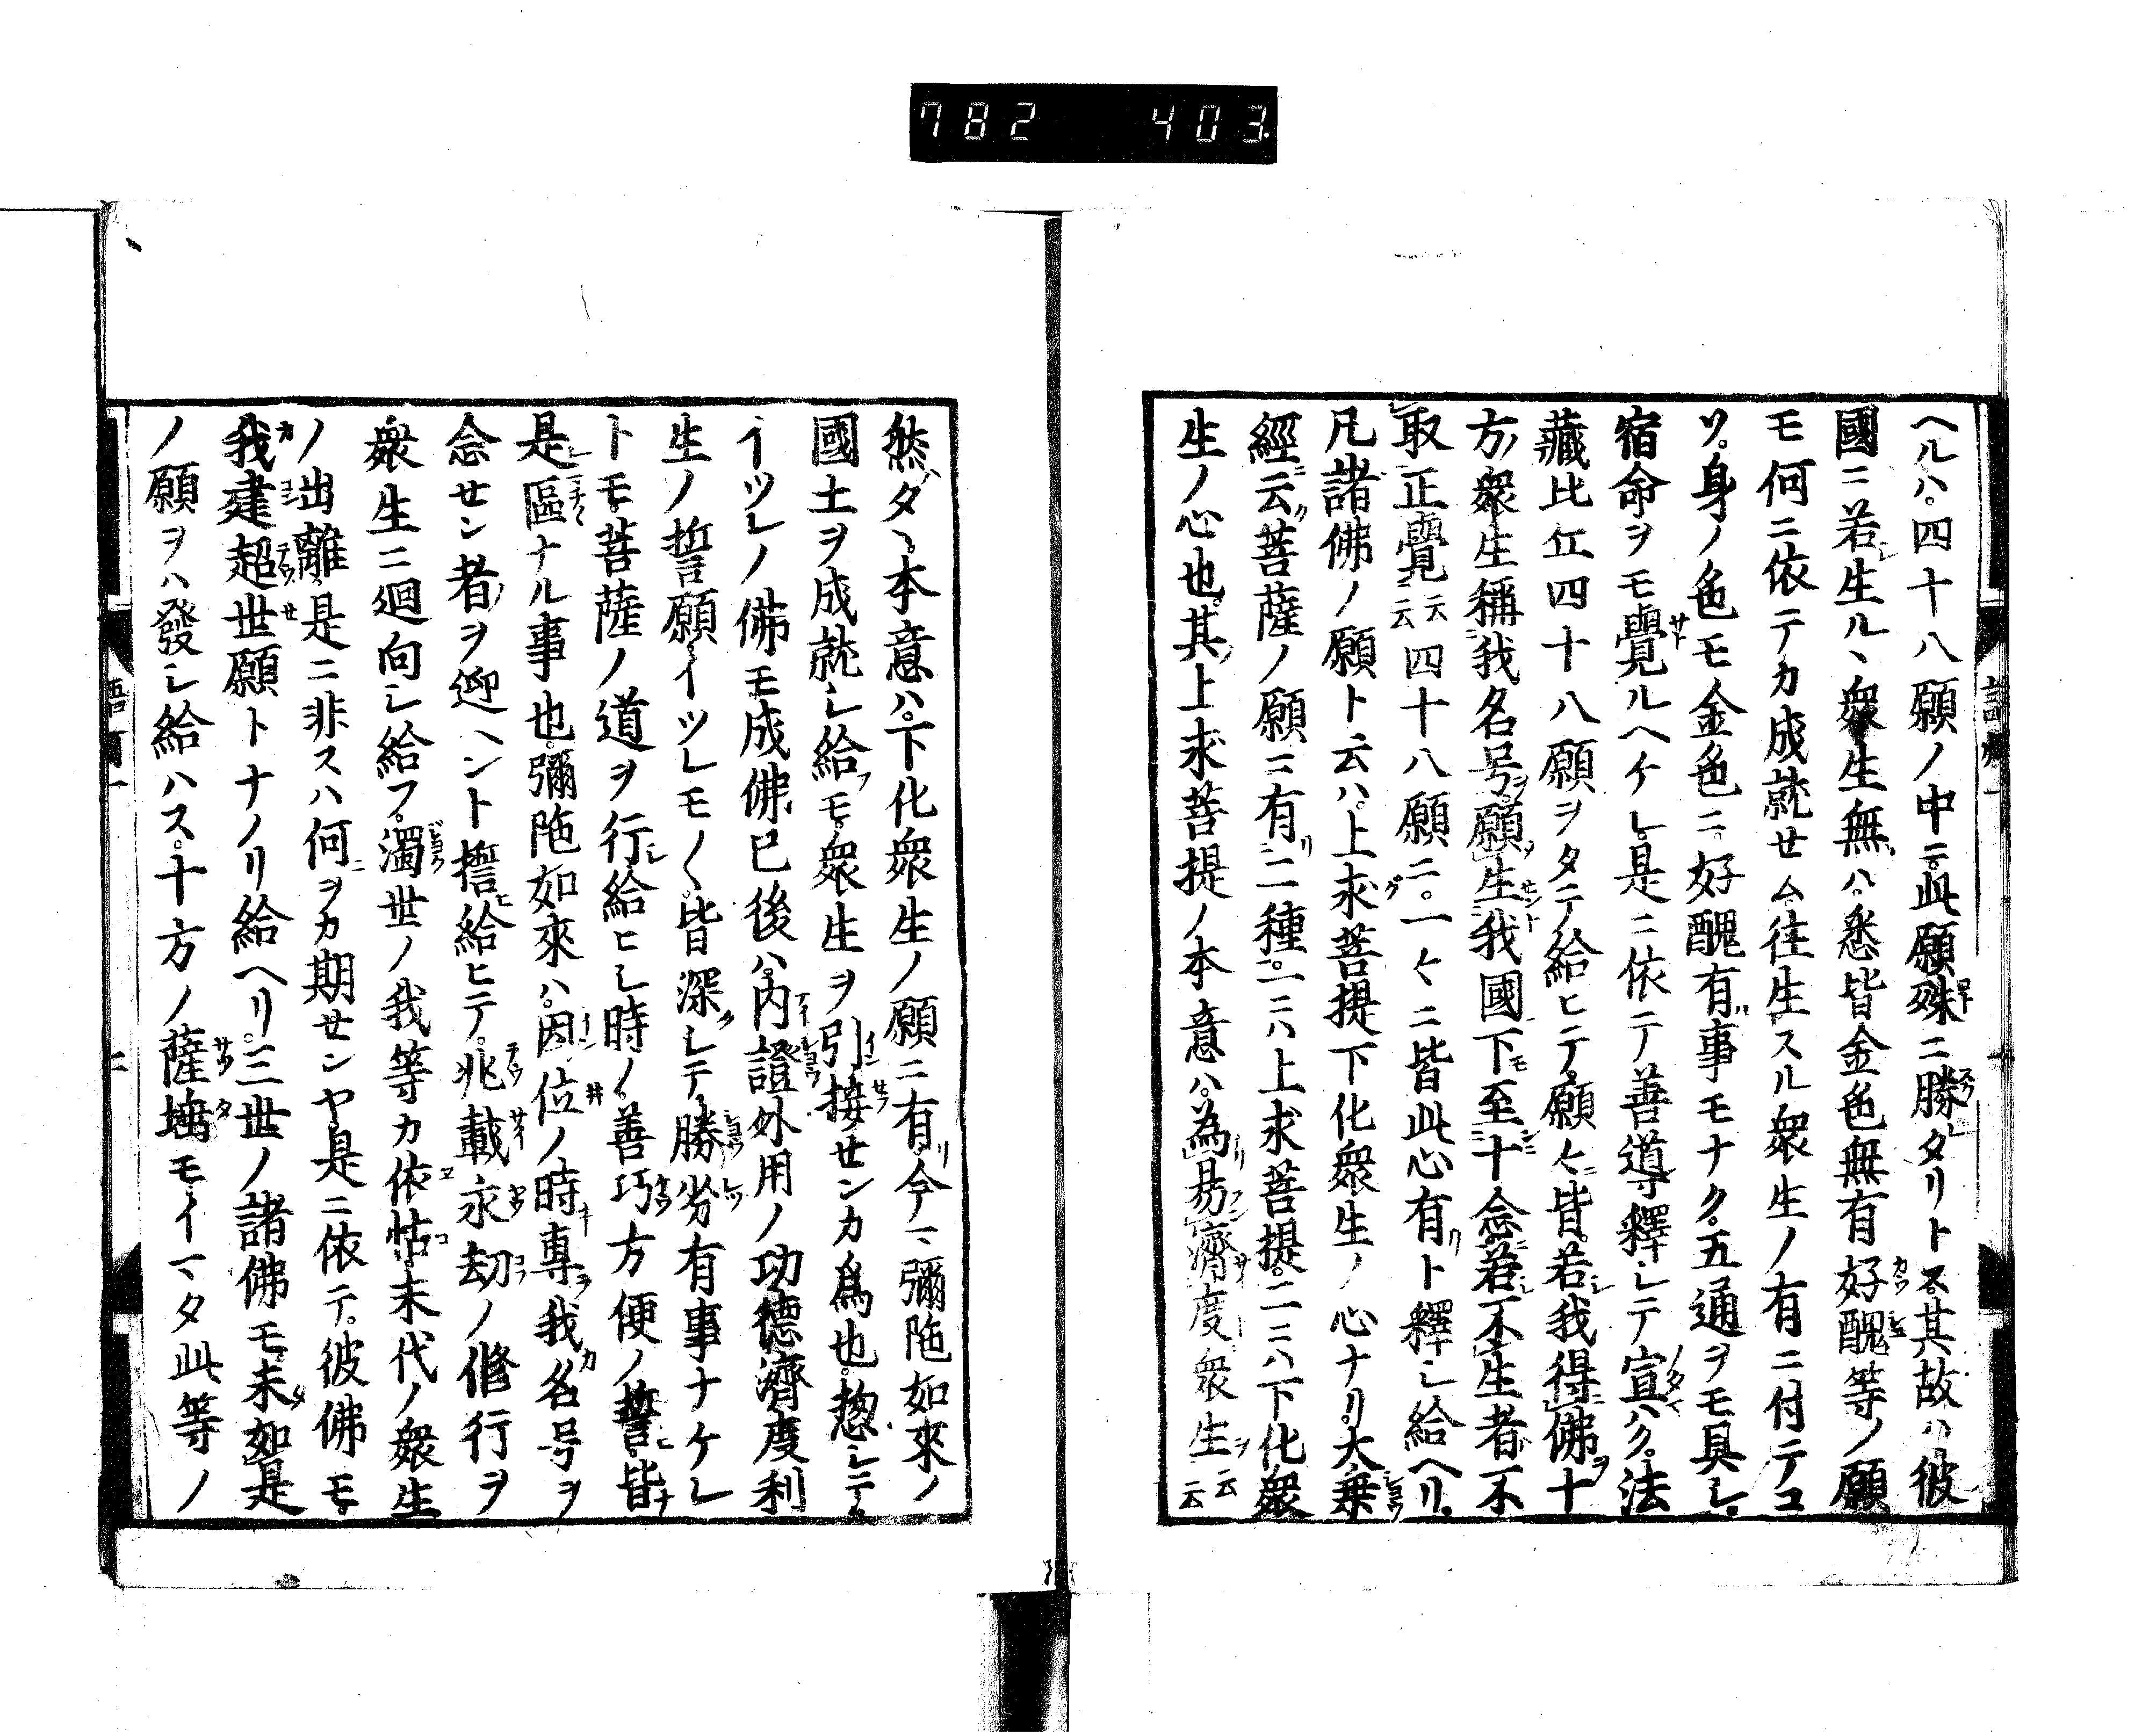 782 403
ヘルハ。四十八願ノ中ニ。此願殊ニ勝タリトス。其故ハ彼
國ニ若生ルヽ衆生無ハ。悉皆金色無有好醜等ノ願
モ何ニ依テカ成就セム。往生スル衆生ノ有ニ付テコ
ソ。身ノ色モ金色ニ。好醜有事モナク。五通ヲモ具シ。
宿命ヲモ覺ルヘケレ。是ニ依テ善導釋シテ宣ハク。法
藏比丘四十八願ヲタテ給ヒテ。願々皆。若我得佛十
方衆生稱我名号願生我國下至十念若不生者不
取正覺云云四十八願ニ。一々ニ皆此心有ト釋シ給ヘリ。
凡諸佛ノ願ト云ハ。上求菩提下化衆生ノ心ナリ。大乗
經云菩薩ノ願ニ有二種。一ニハ上求菩提。二ニハ下化衆
生ノ心也。其上求菩提ノ本意ハ。為易濟度衆生云云
然ハタヽ本意ハ。下化衆生ノ願ニ有。今ヽ彌陁如來ノ
國土ヲ成就シ給モ。衆生ヲ引接センカ爲也。惣シテ
イツレノ佛モ成佛已後ハ。内證外用ノ功德濟度利
生ノ誓願。イツレモ〳〵皆深シテ勝劣有事ナケレ
トモ。菩薩ノ道ヲ行給ヒシ時ノ善巧方便ノ誓。皆
是區ナル事也。彌陁如來ハ。因位ノ時專我名号ヲ
念セン者ヲ迎ヘント誓給ヒテ。兆載永劫ノ修行ヲ
衆生ニ迴向シ給フ。濁世ノ我等カ依怙。末代ノ衆生
ノ出離。是ニ非スハ何ヲカ期センヤ。是ニ依テ。彼佛モ
我建超世願トナノリ給ヘリ。三世ノ諸佛モ。未如是
ノ願ヲハ發シ給ハス。十方ノ薩埵モイマタ此等ノ